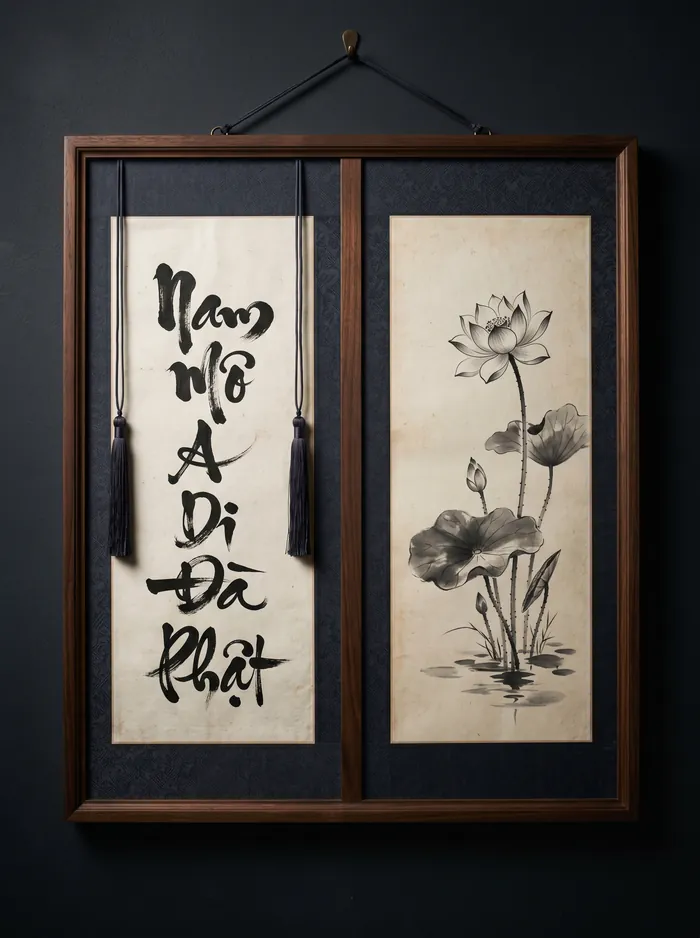 Nam
Mô
A
Di
Đà
Phật